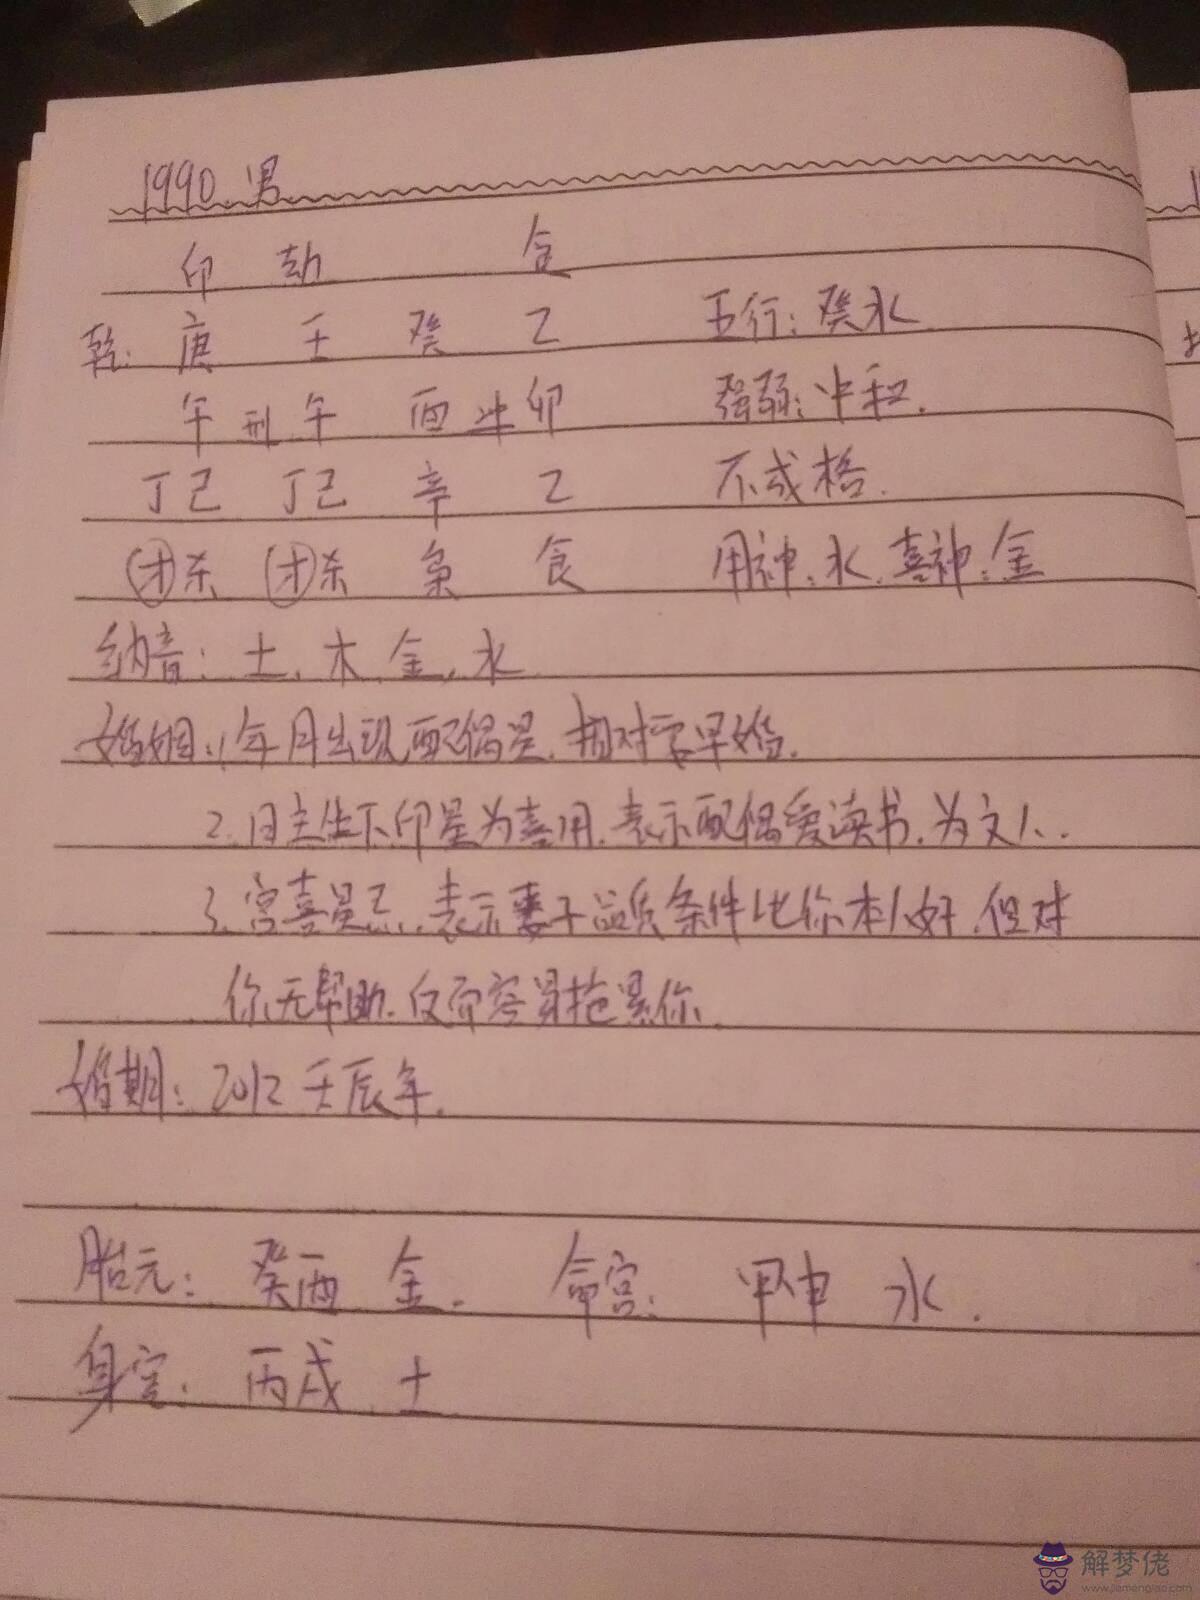 1990. 男
印 劫 食
乾: 庚 壬 癸 乙 五行: 癸水
午 刑 午 酉 冲 卯 强弱: 中和.
丁己 丁己 辛 乙 不成格.
才杀 才杀 枭 食 用神: 水. 喜神: 金
纳音: 土. 木. 金. 水
婚姻: 1, 年月出现配偶星. 相对会早婚.
2. 日主坐下印星为喜用. 表示配偶爱读书. 为文人..
3. 宫喜星忌. 表示妻子品质条件比你本人好. 但对
你无帮助. 反而容易拖累你.
婚期: 2012 壬辰年.
胎元: 癸酉 金. 命宫: 甲申 水.
身宫: 丙戌 土
解梦佬
www.jiemenglao.com